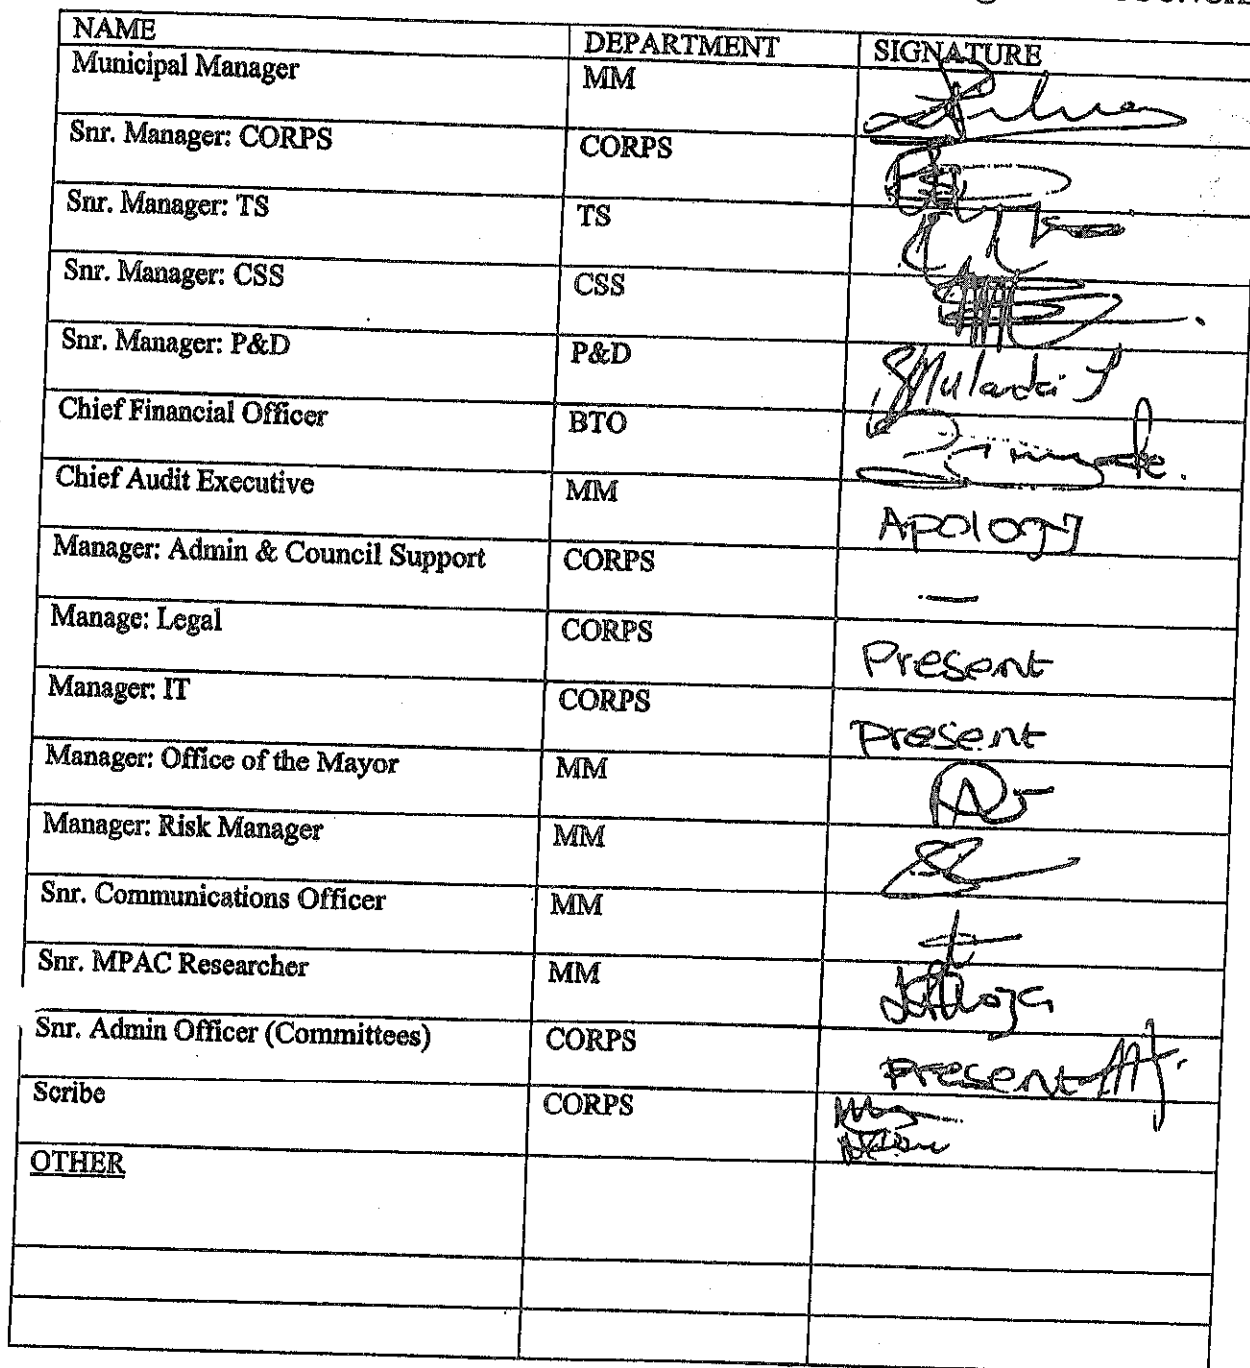 NAME DEPARTMENT SIGNATURE
Municipal Manager MM
Snr. Manager: CORPS CORPS
Snr. Manager: TS TS
Snr. Manager: CSS CSS
Snr. Manager: P&D P&D
Chief Financial Officer BTO
Chief Audit Executive MM Apology
Manager: Admin & Council Support CORPS —
Manage: Legal CORPS Present
Manager: IT CORPS Present
Manager: Office of the Mayor MM
Manager: Risk Manager MM
Snr. Communications Officer MM
Snr. MPAC Researcher MM
Snr. Admin Officer (Committees) CORPS Present
Scribe CORPS
OTHER